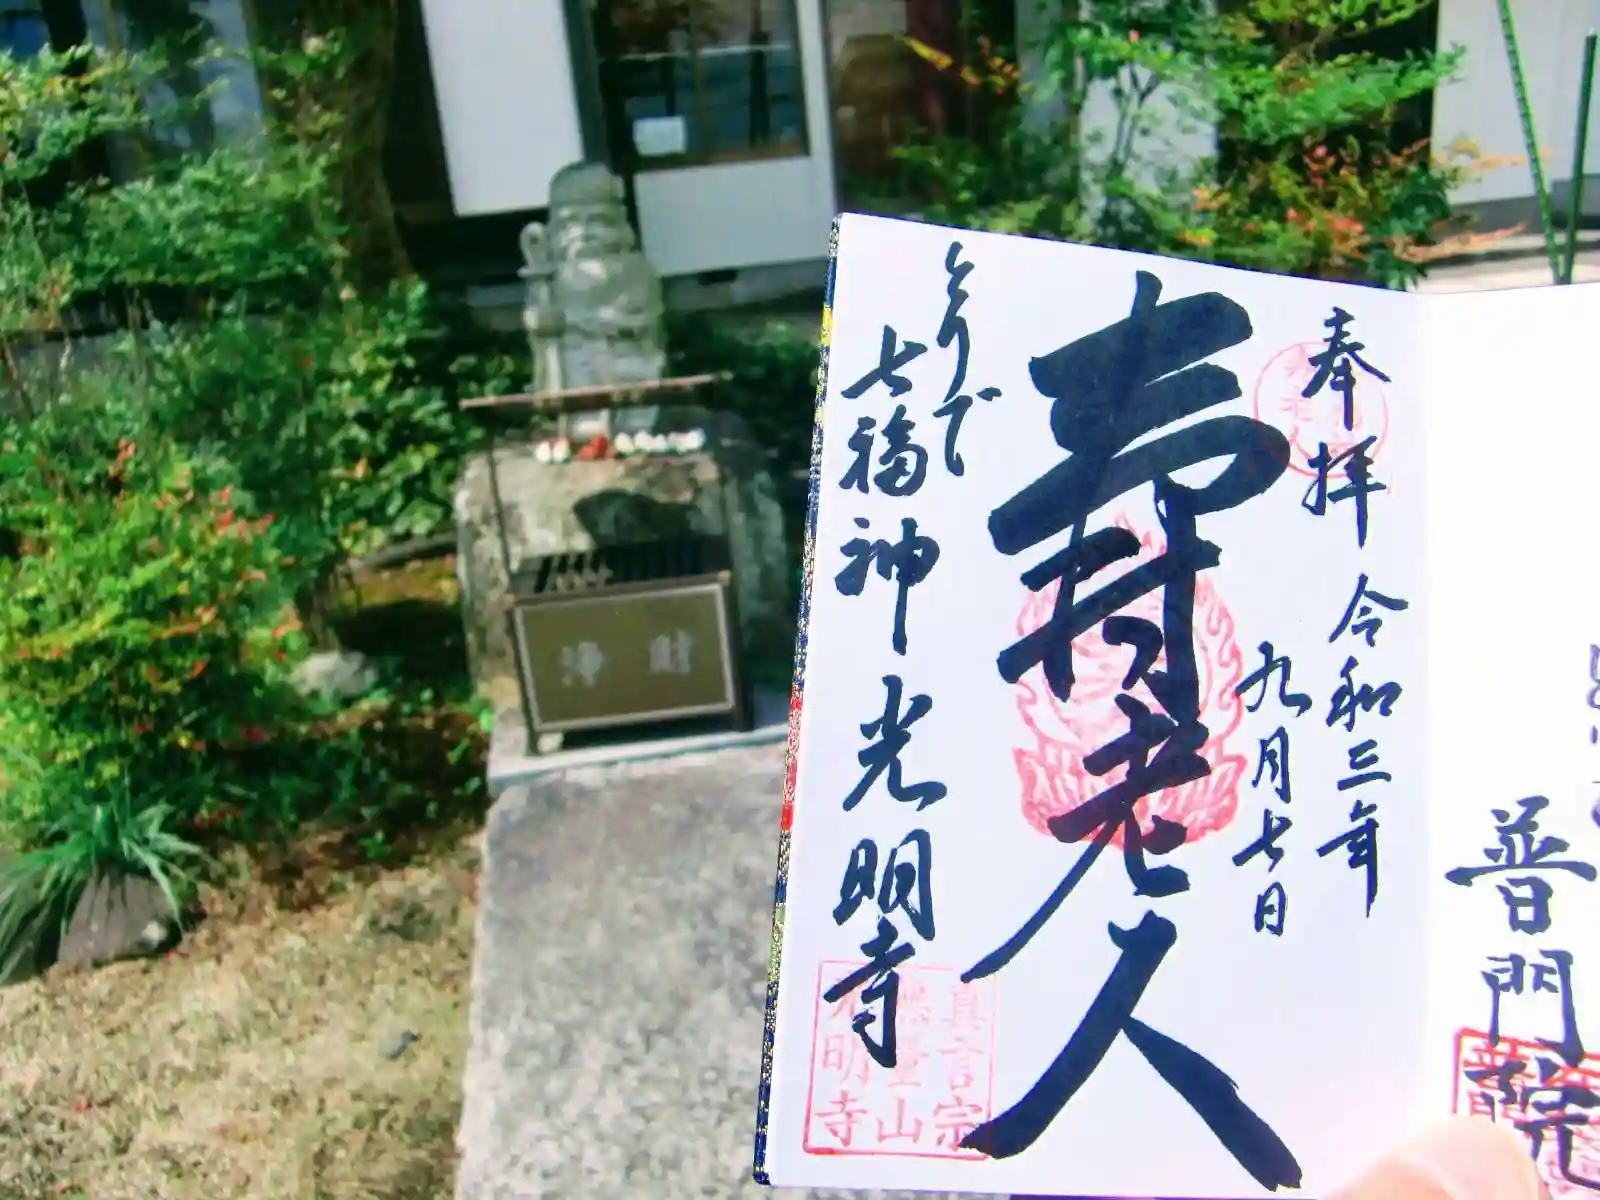 普門院
奉拝
令和三年
九月七日
寿老人
とりで
七福神
光明寺
真言宗
無量山
光明寺
浄財